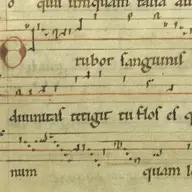 o quā umquam
O rubor sanguinis
divinitas tetigit tu flos es q
num quam la